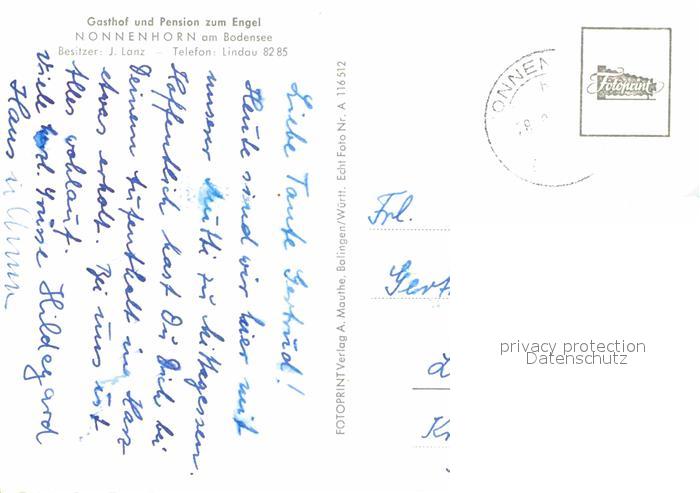 Gasthof und Pension zum Engel
NONNENHORN am Bodensee
Besitzer: J. Lanz — Telefon: Lindau 8285
Liebe Tante Gertrud!
Heute sind wir hier mit
unserer Mutti zu Mittagessen.
Hoffentlich hast Du Dich bei
Deinem Aufenthalt im Harz
etwas erholt. Bei uns ist
Alles wohlauf.
Viele herzl. Grüsse Hildegard
Hans u.
FOTOPRINT Verlag A. Mauthe, Balingen/Württ. Echt Foto Nr. A 116512
ONNEN
Fotoprint
Frl.
Gert
Kr
privacy protection
Datenschutz